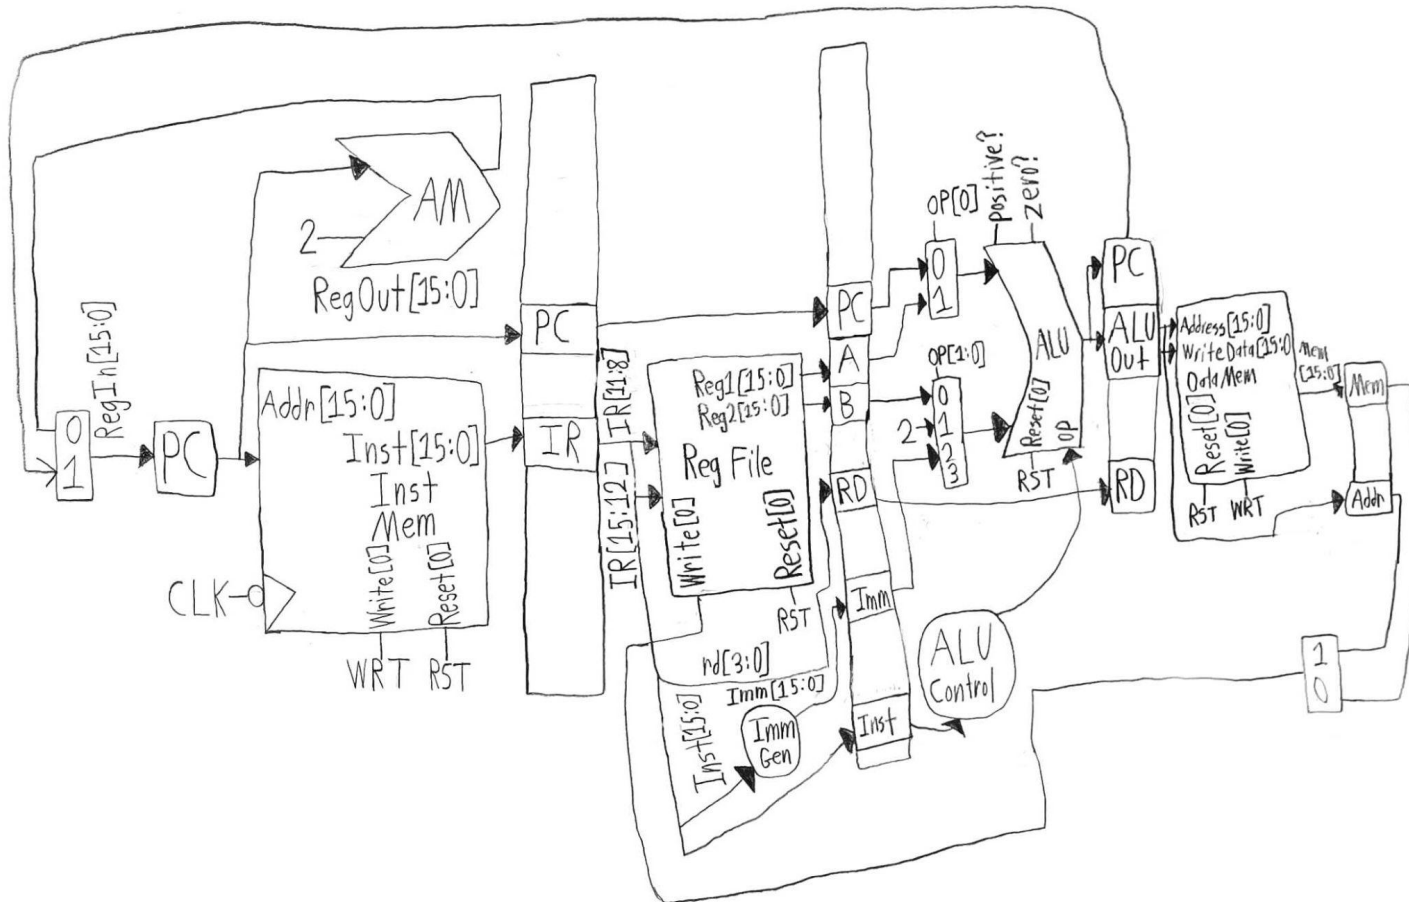 AM
2
RegOut[15:0]
RegIn[15:0]
0
1
PC
Addr[15:0]
Inst[15:0]
Inst
Mem
Write[0]
Reset[0]
CLK
WRT
RST
PC
IR
IR[11:8]
IR[15:12]
Reg1[15:0]
Reg2[15:0]
Reg File
Write[0]
Reset[0]
RST
rd[3:0]
Imm[15:0]
Inst[15:0]
Imm
Gen
PC
A
B
RD
Imm
Inst
OP[0]
0
1
OP[1:0]
0
2
1
2
3
positive?
zero?
ALU
Reset[0]
OP
RST
ALU
Control
PC
ALU
Out
RD
Address[15:0]
WriteData[15:0
DataMem
Reset[0]
Write[0]
RST
WRT
Mem
[15:0]
Mem
Addr
1
0